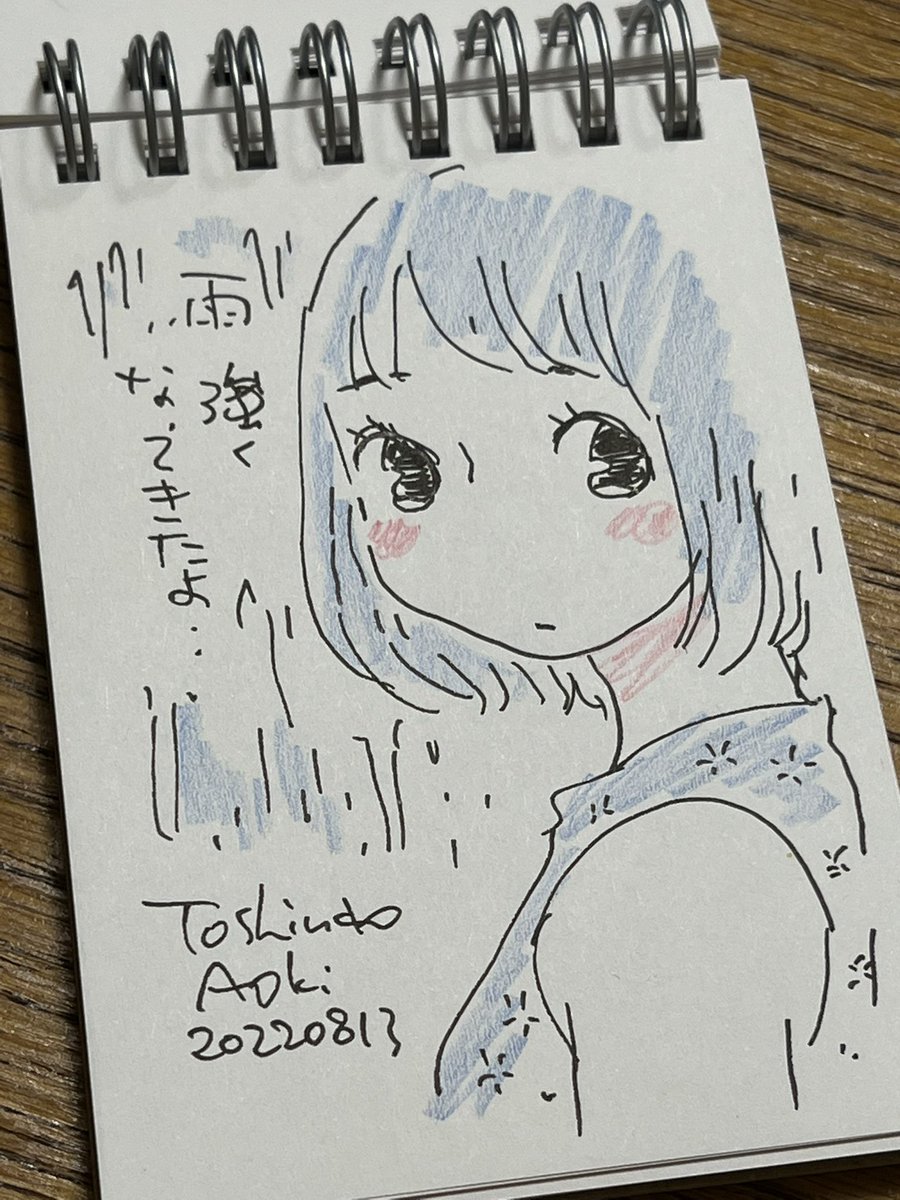 雨
強く
なってきたよ…
Toshinao
Aoki
20220813